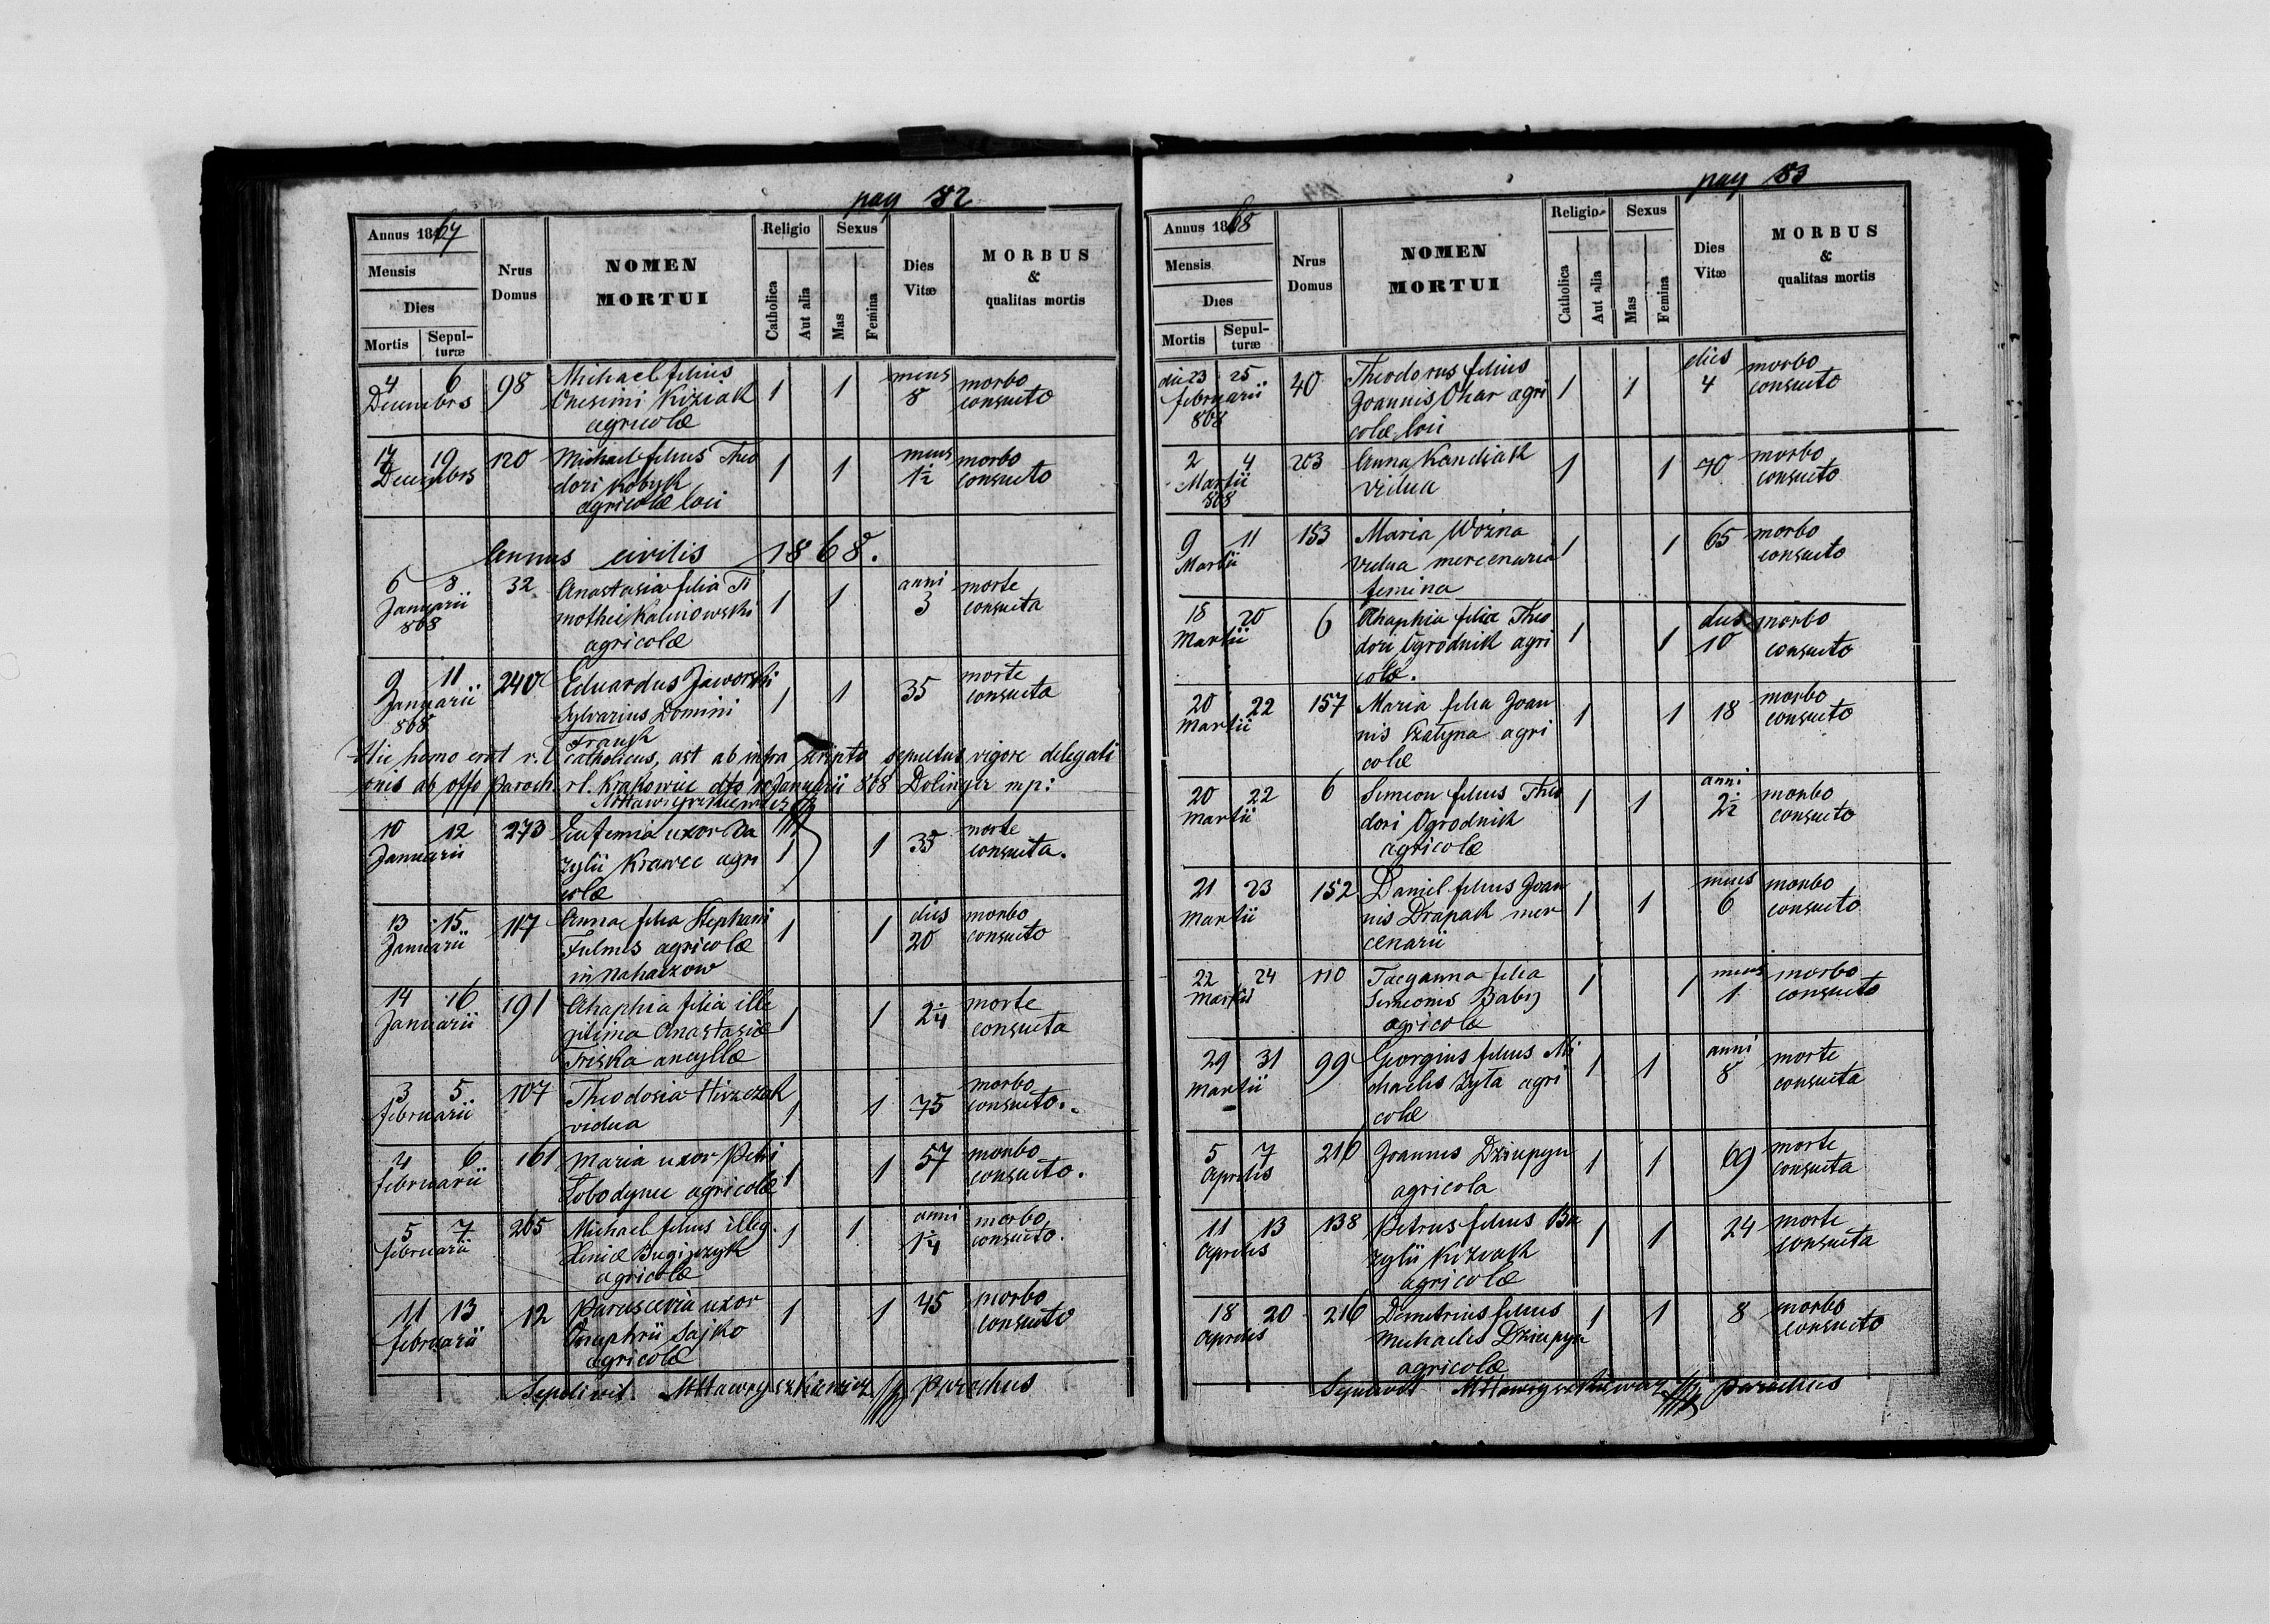 pag 82
Annus 1867
Mensis
Dies
Mortis
Sepulturæ
Nrus Domus
NOMEN MORTUI
Religio
Catholica
Aut alia
Sexus
Mas
Femina
Dies Vitæ
MORBUS & qualitas mortis
4 6 98 Michael filius 1 1 mens morbo
Decembrs Onesimi Kiziak 8 consueto
agricolæ
17 19 120 Michael filius Theo 1 1 mens morbo
Decembrs dori Kobyk 1½ consueto
agricolæ loci
Annus civilis 1868.
6 8 32 Anastasia filia Ti 1 1 anni morte
Januarii mothei Kalinowski 3 consueta
868 agricolæ
9 11 240 Eduardus Jaworski 1 1 35 morte
Januarii Sylvarius Domini consueta
868 Frank
Hic homo erat r. l. catholicus, ast ab infra scripto sepultus vigore delegati
onis ab offo paroch. r l. Krakowiec dto 10 Januarii 868 Dolinger mp:
10 12 273 Eufemia uxor Ba 1 1 35 morte
Januarii zylii Krawec agri consueta.
colæ
13 15 117 Anna filia Stephani 1 1 dies morbo
Januarii Fulmes agricolæ 20 consueto
in Nahaczow
14 16 191 Ahaphia filia ille 1 1 2¼ morte
Januarii gitima Anastasiæ consueta
Triska ancyllæ
3 5 107 Theodosia Hiszczak 1 1 75 morbo
februarii vidua consueto.
4 6 161 Maria uxor Petri 1 1 57 morbo
februarii Lobodynec agricolæ consueto.
5 7 265 Michael filius illeg. 1 1 anni morbo
februarii Xeniæ 1¼ consueto.
agricolæ
11 13 12 Paruscevia uxor 1 1 45 morbo
februarii Onuphrii Sajko consueto
agricolæ
Sepelivit. MHawryszkiewicz parochus
pag 83
Annus 1868
Mensis
Dies
Mortis
Sepulturæ
Nrus Domus
NOMEN MORTUI
Religio
Catholica
Aut alia
Sexus
Mas
Femina
Dies Vitæ
MORBUS & qualitas mortis
die 23 25 40 Theodorus filius 1 1 dies morbo
februarii Joannis Ohar agri 4 consueto
868 colæ loci
2 4 203 Anna Kondiak 1 1 70 morbo
Martii vidua consueto
868
9 11 153 Maria Wozna 1 1 65 morbo
Martii vidua mercenaria consueto
femina
18 20 6 Ahaphia filia Theo 1 1 dies morbo
Martii dori Ogrodnik agri 10 consueto
colæ.
20 22 157 Maria filia Joan 1 1 18 morbo
Martii nis agri consueto
colæ
20 22 6 Simeon filius Theo 1 1 anni morbo
Martii dori Ogrodnik 2½ consueto
agricolæ
21 23 152 Daniel filius Joan 1 1 mens morbo
Martii nis Drapak mer 6 consueto
cenarii
22 24 110 Tacyanna filia 1 1 mens morbo
Martii Simeonis Babij 1 consueto
agricolæ
29 31 99 Georgius filius Mi 1 1 anni morte
Martii chaelis Zyta agri 8 consueta
colæ
5 7 216 Joannes Dziupyn 1 1 69 morte
Aprilis agricola consueta
11 13 138 Petrus filius Ba 1 1 24 morte
Aprilis zylii Kiziak consueta
agricolæ
18 20 216 Demetrius filius 1 1 8 morbo
Aprilis Michaelis Dziupyn consueto
agricolæ
Sepelivit MHawryszkiewicz parochus